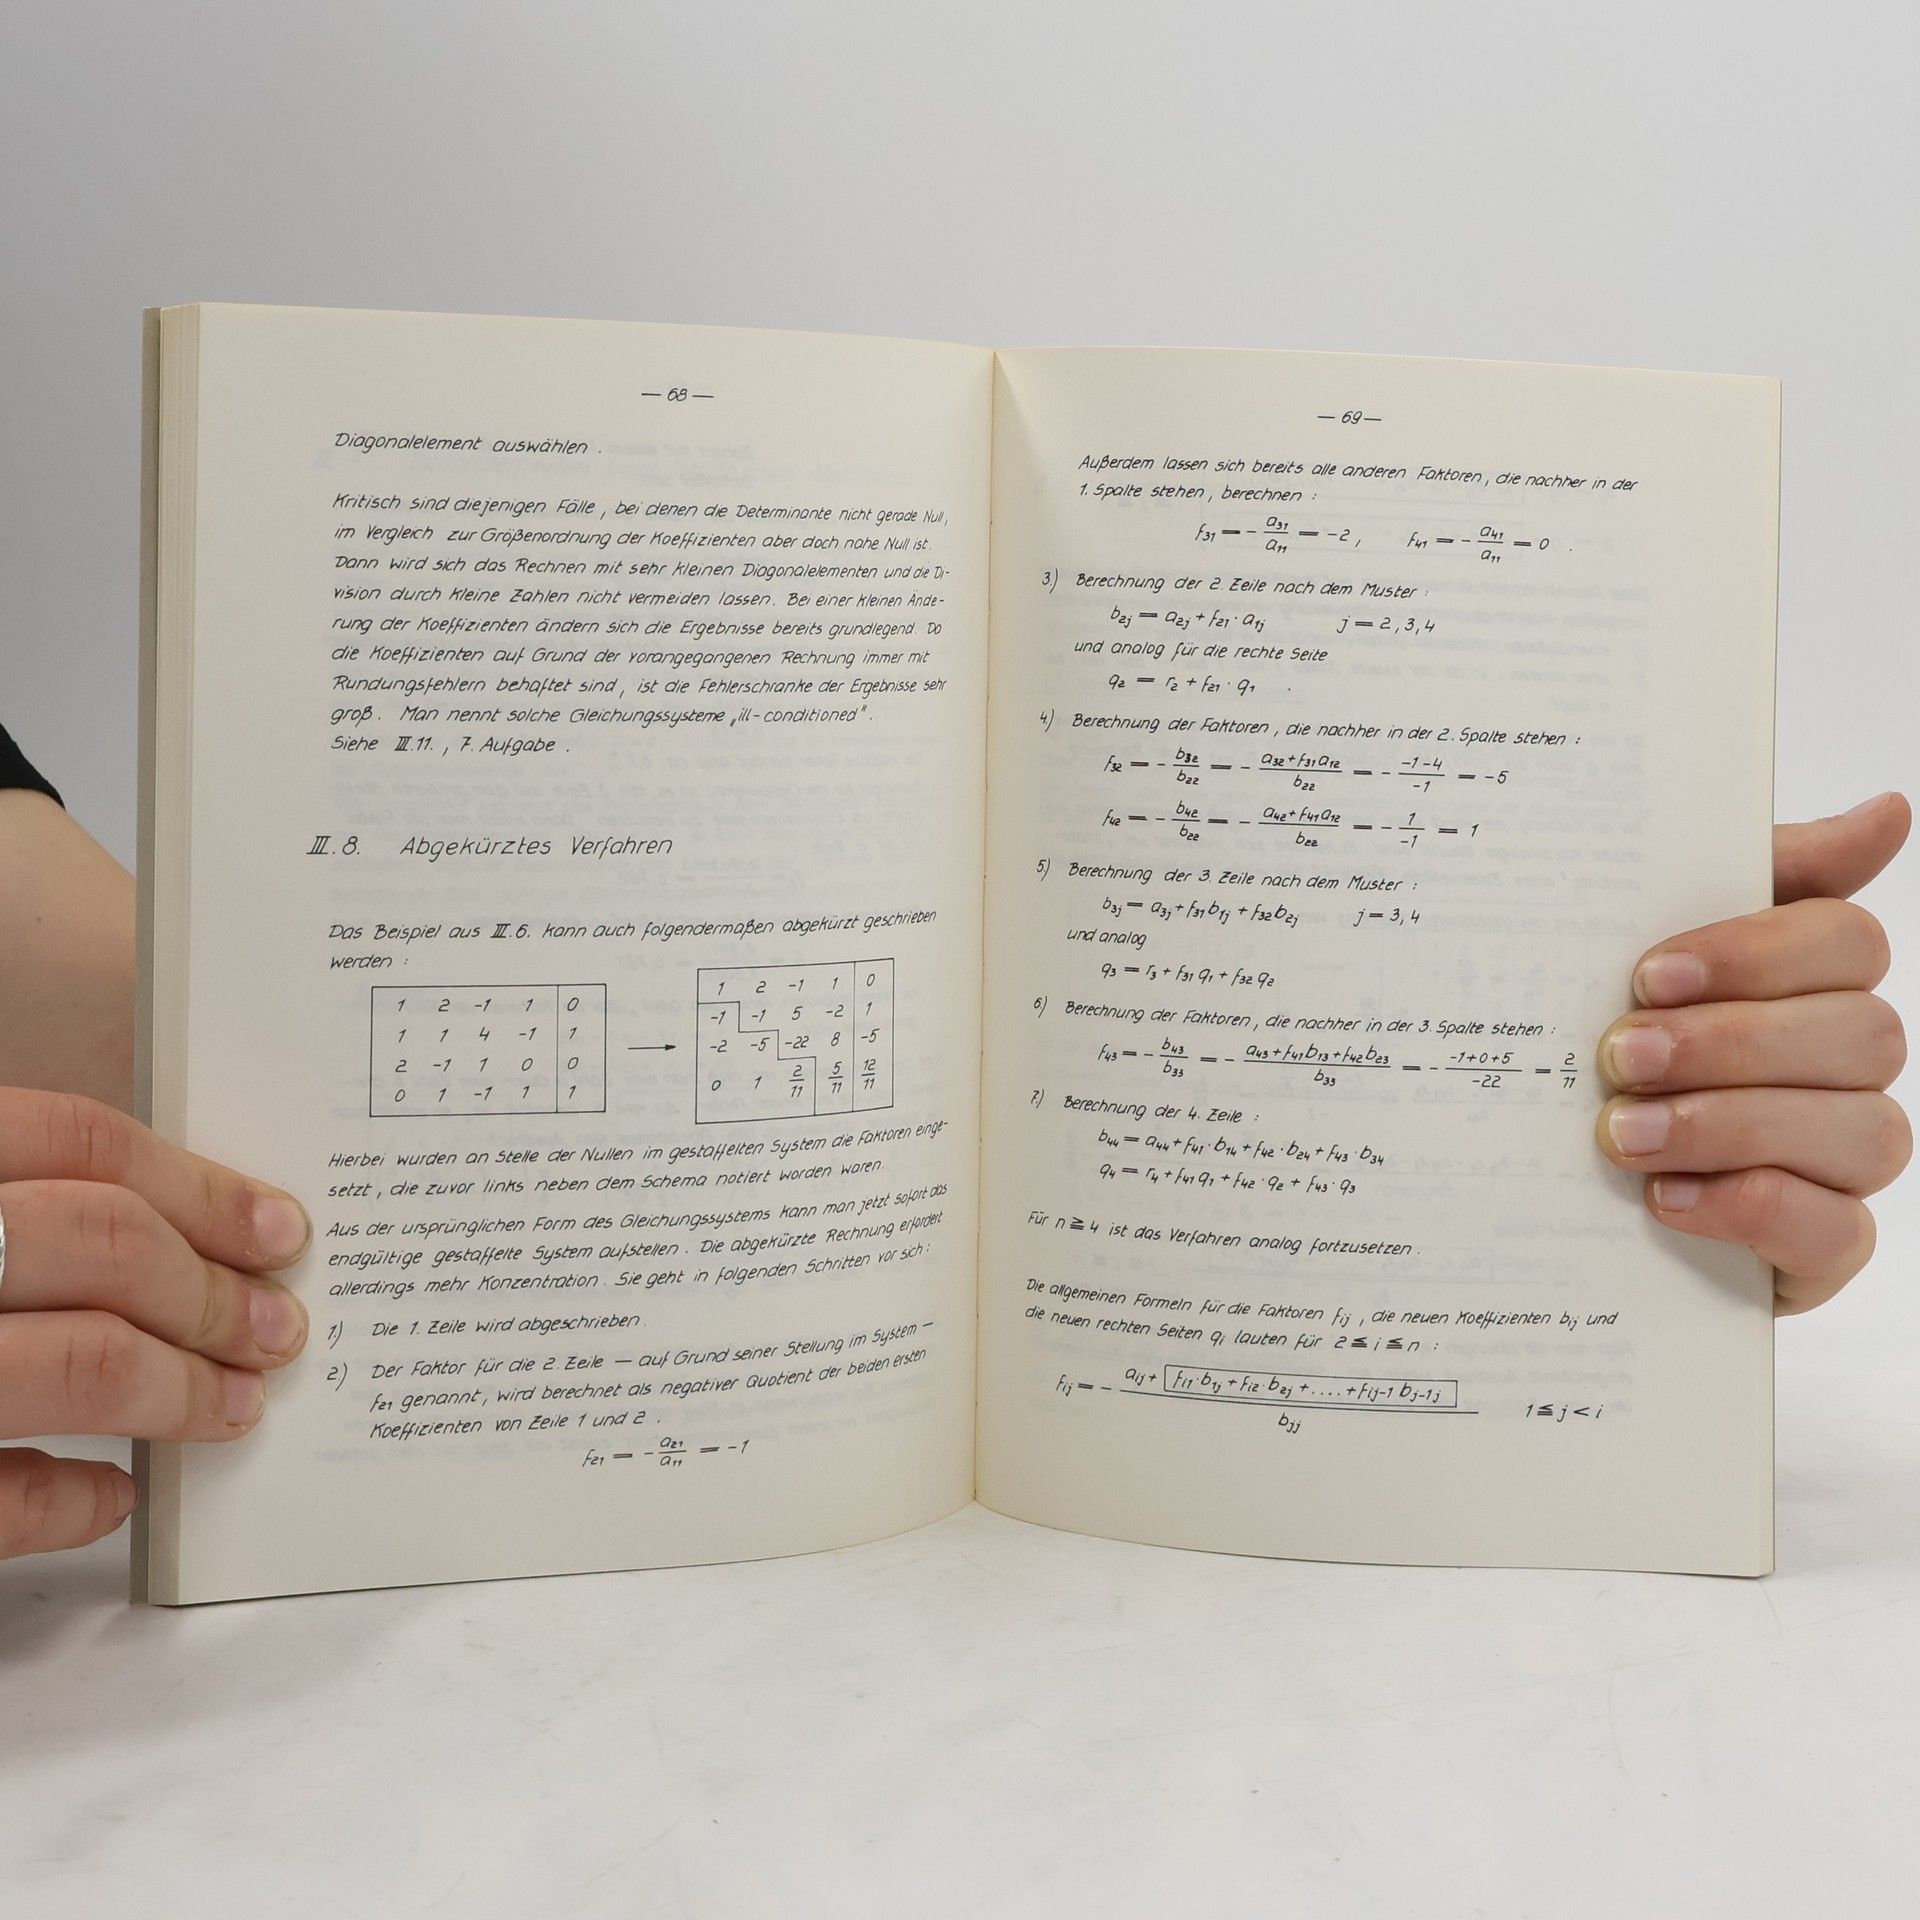 — 68 —
Diagonalelement auswählen .
Kritisch sind diejenigen Fälle , bei denen die Determinante nicht gerade Null,
im Vergleich zur Größenordnung der Koeffizienten aber doch nahe Null ist.
Dann wird sich das Rechnen mit sehr kleinen Diagonalelementen und die Di-
vision durch kleine Zahlen nicht vermeiden lassen. Bei einer kleinen Ände-
rung der Koeffizienten ändern sich die Ergebnisse bereits grundlegend. Da
die Koeffizienten auf Grund der vorangegangenen Rechnung immer mit
Rundungsfehlern behaftet sind , ist die Fehlerschranke der Ergebnisse sehr
groß. Man nennt solche Gleichungssysteme „ill-conditioned".
Siehe III.11. , 7. Aufgabe .
III. 8. Abgekürztes Verfahren
Das Beispiel aus III.6. kann auch folgendermaßen abgekürzt geschrieben
werden :
1 2 -1 1 0
1 1 4 -1 1
2 -1 1 0 0
0 1 -1 1 1
→
1 2 -1 1 0
-1 -1 5 -2 1
-2 -5 -22 8 -5
0 1 2/11 5/11 12/11
Hierbei wurden an Stelle der Nullen im gestaffelten System die Faktoren einge-
setzt , die zuvor links neben dem Schema notiert worden waren.
Aus der ursprünglichen Form des Gleichungssystems kann man jetzt sofort das
endgültige gestaffelte System aufstellen . Die abgekürzte Rechnung erfordert
allerdings mehr Konzentration . Sie geht in folgenden Schritten vor sich :
1.) Die 1. Zeile wird abgeschrieben .
2.) Der Faktor für die 2. Zeile — auf Grund seiner Stellung im System —
f21 genannt , wird berechnet als negativer Quotient der beiden ersten
Koeffizienten von Zeile 1 und 2 .
f21 = - a21/a11 = -1
— 69 —
Außerdem lassen sich bereits alle anderen Faktoren , die nachher in der
1. Spalte stehen , berechnen :
f31 = - a31/a11 = -2 , f41 = - a41/a11 = 0 .
3.) Berechnung der 2. Zeile nach dem Muster :
b2j = a2j + f21 · a1j j = 2, 3, 4
und analog für die rechte Seite
q2 = r2 + f21 · q1 .
4.) Berechnung der Faktoren , die nachher in der 2. Spalte stehen :
f32 = - b32/b22 = - (a32 + f31 a12)/b22 = - (-1-4)/-1 = -5
f42 = - b42/b22 = - (a42 + f41 a12)/b22 = - 1/-1 = 1
5.) Berechnung der 3. Zeile nach dem Muster :
b3j = a3j + f31 b1j + f32 b2j j = 3, 4
und analog
q3 = r3 + f31 q1 + f32 q2
6.) Berechnung der Faktoren , die nachher in der 3. Spalte stehen :
f43 = - b43/b33 = - (a43 + f41 b13 + f42 b23)/b33 = - (-1+0+5)/-22 = 2/11
7.) Berechnung der 4. Zeile :
b44 = a44 + f41 · b14 + f42 · b24 + f43 · b34
q4 = r4 + f41 q1 + f42 · q2 + f43 · q3
Für n ≧ 4 ist das Verfahren analog fortzusetzen .
Die allgemeinen Formeln für die Faktoren fij , die neuen Koeffizienten bij und
die neuen rechten Seiten qi lauten für 2 ≦ i ≦ n :
fij = - (aij + fi1 · b1j + fi2 · b2j + .... + fij-1 bj-1j)/bjj 1 ≦ j < i